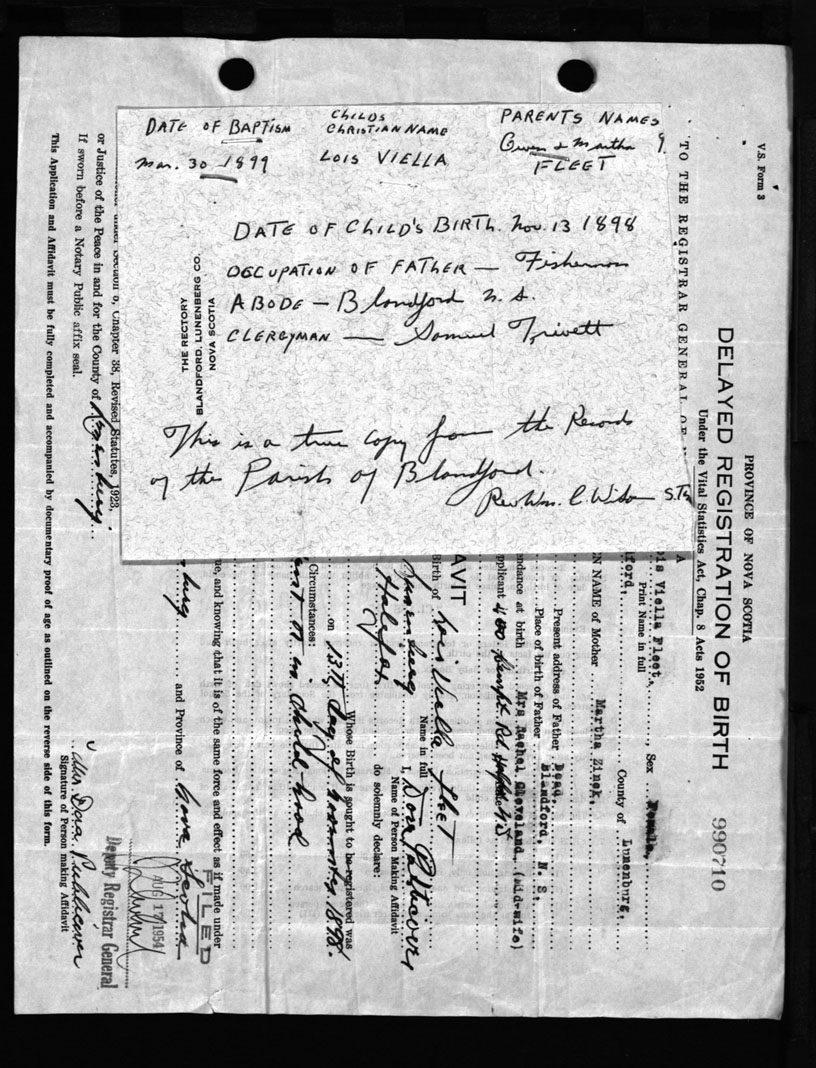 DATE OF BAPTISM
CHILDS CHRISTIAN NAME
PARENTS NAMES
Mar. 30 1899
LOIS VIELLA
Owen & Martha
FLEET
DATE OF CHILD'S BIRTH. Nov. 13 1898
OCCUPATION OF FATHER — Fisherman
ABODE — Blandford N.S.
CLERGYMAN — Samuel Trivett
THE RECTORY
BLANDFORD, LUNENBERG CO.
NOVA SCOTIA
This is a true copy from the Records
of the Parish of Blandford.
Rev Wm. C.
V.S. Form 3
PROVINCE OF NOVA SCOTIA
DELAYED REGISTRATION OF BIRTH 990710
Under the Vital Statistics Act, Chap. 8 Acts 1952
TO THE REGISTRAR GENERAL OF
is Viella Fleet, Sex Female,
Print Name in full
ford, County of Lunenburg,
N NAME of Mother Martha Zinck.
Present address of Father Dead.
Place of birth of Father Blandford, N. S.
ndance at birth Mrs Rachel Cleveland, (mid-wife)
pplicant Kempt Rd.
AVIT
Birth of Lois Viella Fleet
Name in full
Lunenburg I, Dora
Name of Person Making Affidavit
Halifax do solemnly declare:
Whose Birth is sought to be registered was
on 13th day of November 1898.
Circumstances:
in childhood
ue, and knowing that it is of the same force and effect as if made under
burg and Province of Nova Scotia
FILED
AUG 17 1954
Deputy Registrar General
under Section 6, Chapter 38, Revised Statutes, 1923.
or Justice of the Peace in and for the County of Lunenburg
If sworn before a Notary Public affix seal.
Mrs. Dora
Signature of Person making Affidavit
This Application and Affidavit must be fully completed and accompanied by documentary proof of age as outlined on the reverse side of this form.